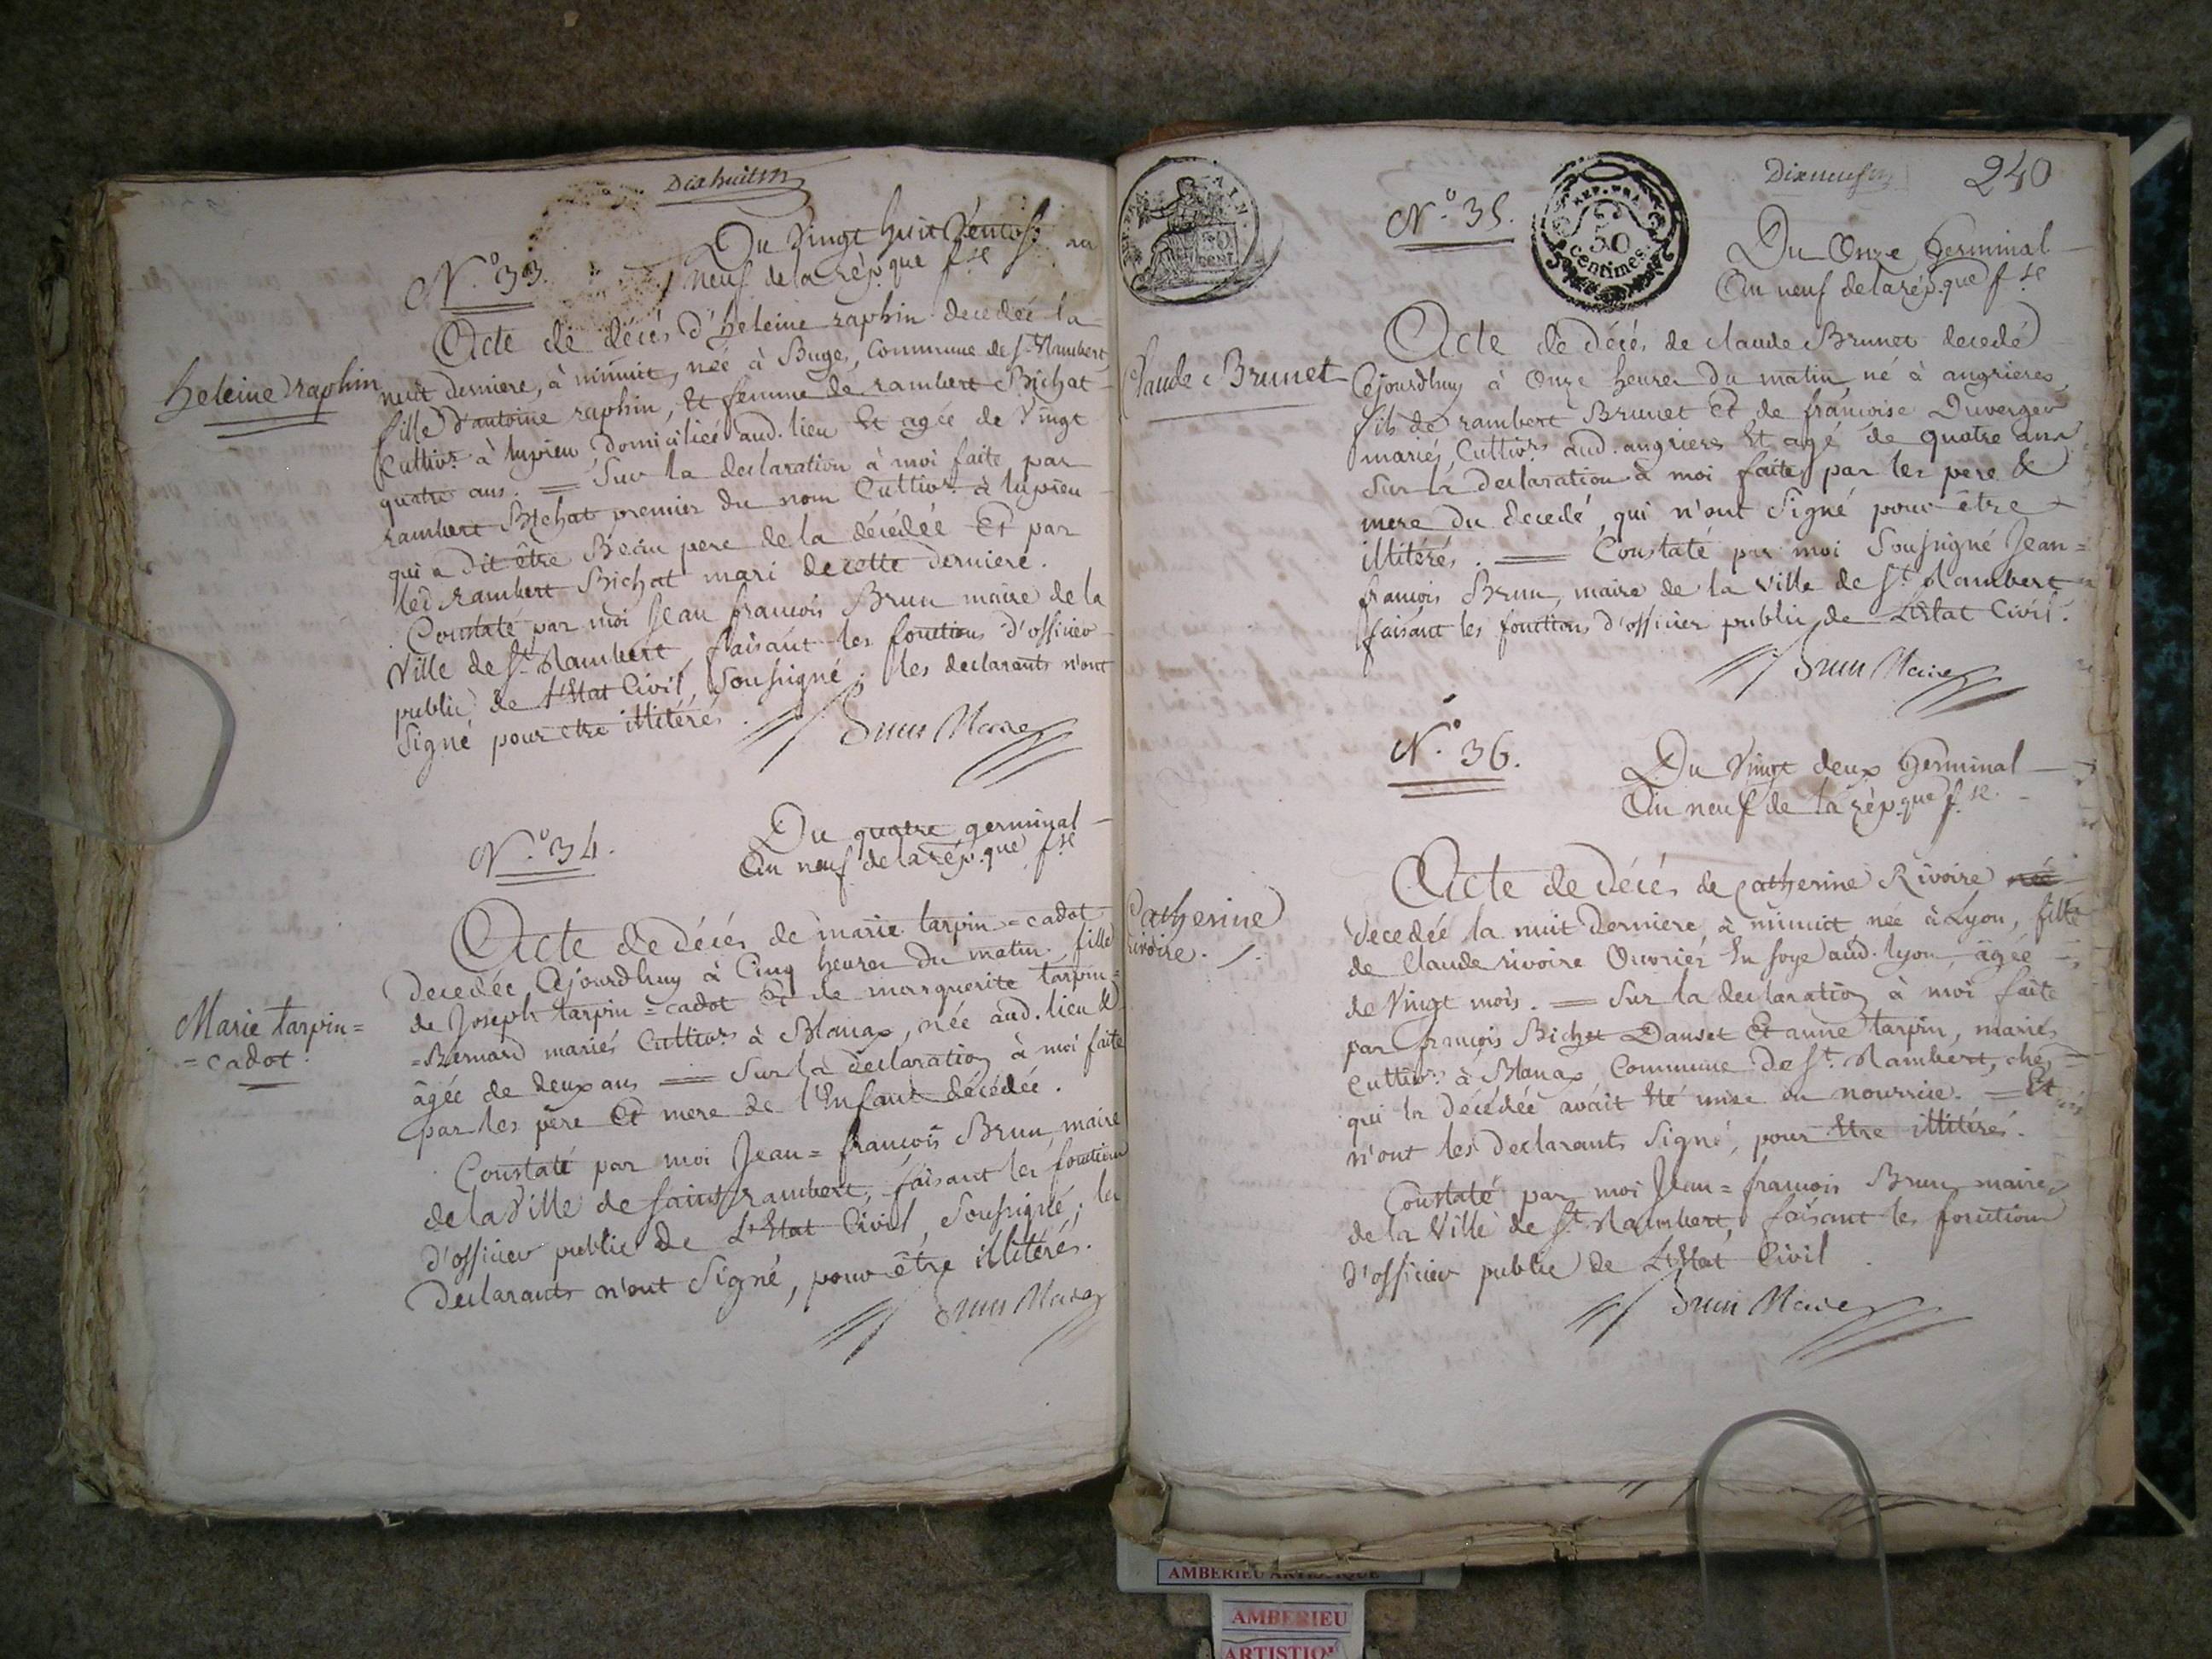 Dixhuit
N.° 33.
Du Vingt huit Ventose an
neuf de la rép.que f.se
heleine raphin
Acte de décés d'heleine raphin decedée la
nuit derniere, à minuit, née à Buges, Commune de St. Rambert,
fille d'antoine raphin, Et femme de rambert Bichat
Cultivr. à lupieu, domiciliée aud. lieu Et agée de Vingt
quatre ans. = Sur la declaration à moi faite par
rambert Bichat premier du nom Cultivr. à lupieu
qui a dit être Beau pere de la décédée Et par
led rambert Bichat mari de cette derniere.
Constaté par moi Jean françois Brun maire de la
Ville de St. Rambert, faisant les fonctions d'officier
public de L'Etat Civil, Soussigné; les declarants n'ont
Signé pour etre illitérés.
Brun Maire
N.° 34.
Du quatre germinal
An neuf de la rép.que f.se
Marie tarpin=
=cadot.
Acte de décés de marie tarpin=cadot
decedée Cejourdhuy à Cinq heures du matin, fille
de Joseph tarpin=cadot Et de marguerite tarpin=
=Bernard mariés Cultivrs. à Blanax, née aud. lieu &
âgée de deux ans = Sur la declaration à moi faite
par les père Et mere de l'Enfant décédée.
Constaté par moi Jean=françois Brun, maire
de la Ville de saint rambert, faisant les fonctions
d'officier public de L'Etat Civil, Soussigné; les
declarants n'ont Signé, pour être illitérés.
Brun Maire
Dixneuf
240
N.° 35.
50
CENT.
REP. FRA.
50
Centimes.
Du Onze Germinal
An neuf de la rép.que f.se
Claude Brunet
Acte de décés de claude Brunet decedé
Cejourdhuy à Onze heures du matin, né à angrieres,
fils de rambert Brunet Et de françoise Duverger
mariés, Cultivrs. aud. angrieres Et agé de quatre ans
Sur la declaration à moi faite par les pere &
mere du decedé, qui n'ont Signé pour être
illitérés. = Constaté par moi Soussigné Jean=
françois Brun, maire de la Ville de St. Rambert
faisant les fonctions d'officier public de L'Etat Civil.
Brun Maire
N.° 36.
Du Vingt deux Germinal
An neuf de la rép.que f.se
Catherine
rivoire.
Acte de décés de Catherine Rivoire née
decedée la nuit derniere à minuit, née à Lyon, fille
de Claude rivoire Ouvrier En soye aud. lyon, âgée
de Vingt mois. = Sur la declaration à moi faite
par françois Bichet Danset Et anne tarpin, mariés
Cultivrs. à Blanax Commune de St. Rambert, chés
qui la décédée avait Eté mise en nourrice. = Et
n'ont les declarants Signé, pour Etre illitérés.
Constaté par moi Jean=françois Brun, maire
de la Ville de St. Rambert, faisant les fonctions
d'officier public de L'Etat Civil
Brun Maire
AMBERIEU ARTISTIQUE
AMBERIEU
ARTISTIQU